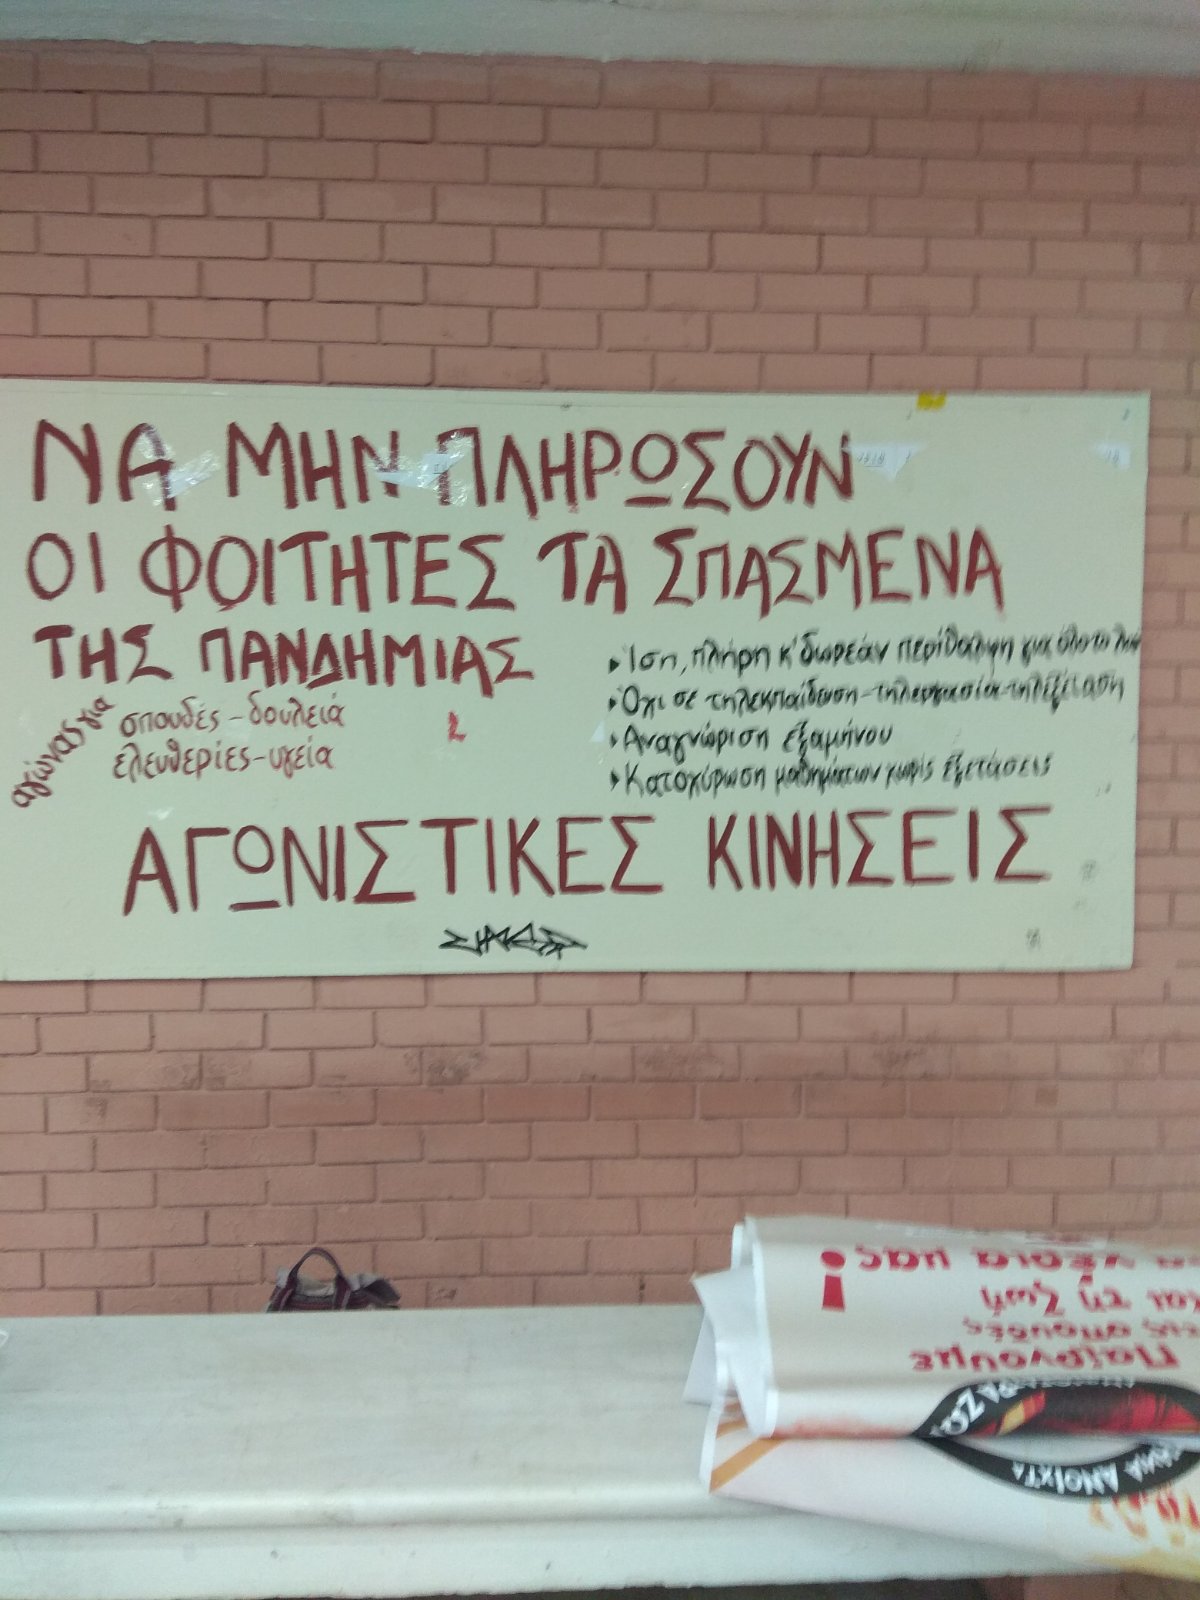 ΝΑ ΜΗΝ ΠΛΗΡΩΣΟΥΝ
ΟΙ ΦΟΙΤΗΤΕΣ ΤΑ ΣΠΑΣΜΕΝΑ
ΤΗΣ ΠΑΝΔΗΜΙΑΣ
αγώνας για
σπουδές - δουλειά
ελευθερίες - υγεία
Ίση, πλήρη κ' δωρεάν περίθαλψη για όλο το λαό
Όχι σε τηλεκπαίδευση - τηλεργασία - τηλεξέταση
Αναγνώριση εξαμήνου
Κατοχύρωση μαθημάτων χωρίς εξετάσεις
ΑΓΩΝΙΣΤΙΚΕΣ ΚΙΝΗΣΕΙΣ
Παίρνουμε
σπουδές
και τη ζωή
χέρια μας!
ΑΝΟΙΧΤΑ